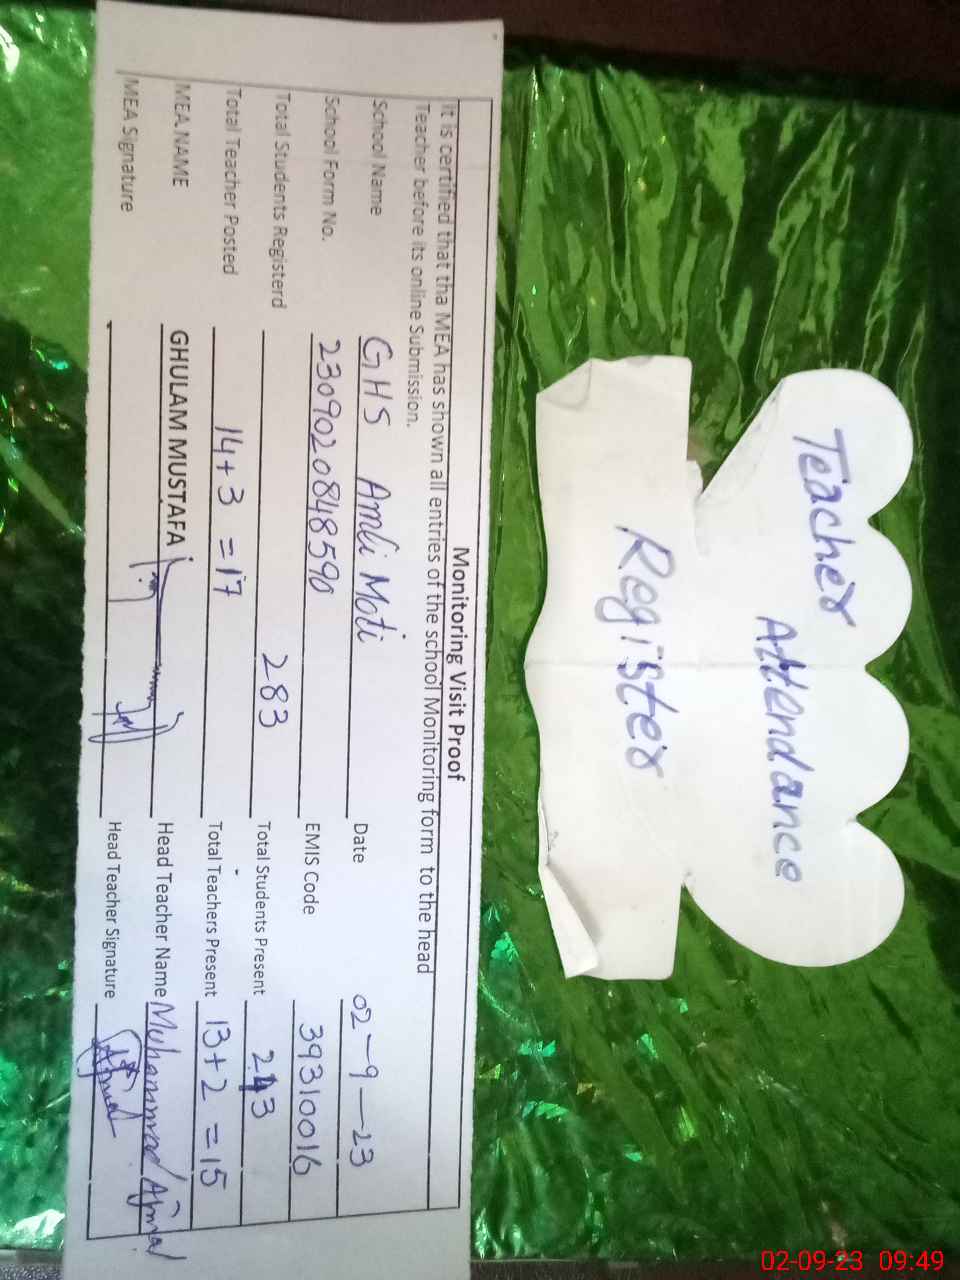 Teacher
Attendance
Register
Monitoring Visit Proof
It is certified that tha MEA has shown all entries of the school Monitoring form to the head
Teacher before its online Submission.
School Name GHS Amli Moti Date 02-9-23
School Form No. 2309020848590 EMIS Code 39310016
Total Students Registerd 283 Total Students Present 243
Total Teacher Posted 14+3=17 Total Teachers Present 13+2=15
MEA NAME GHULAM MUSTAFA Head Teacher Name Muhammad Ajmal
MEA Signature Head Teacher Signature Ajmal
02-09-23 09:49